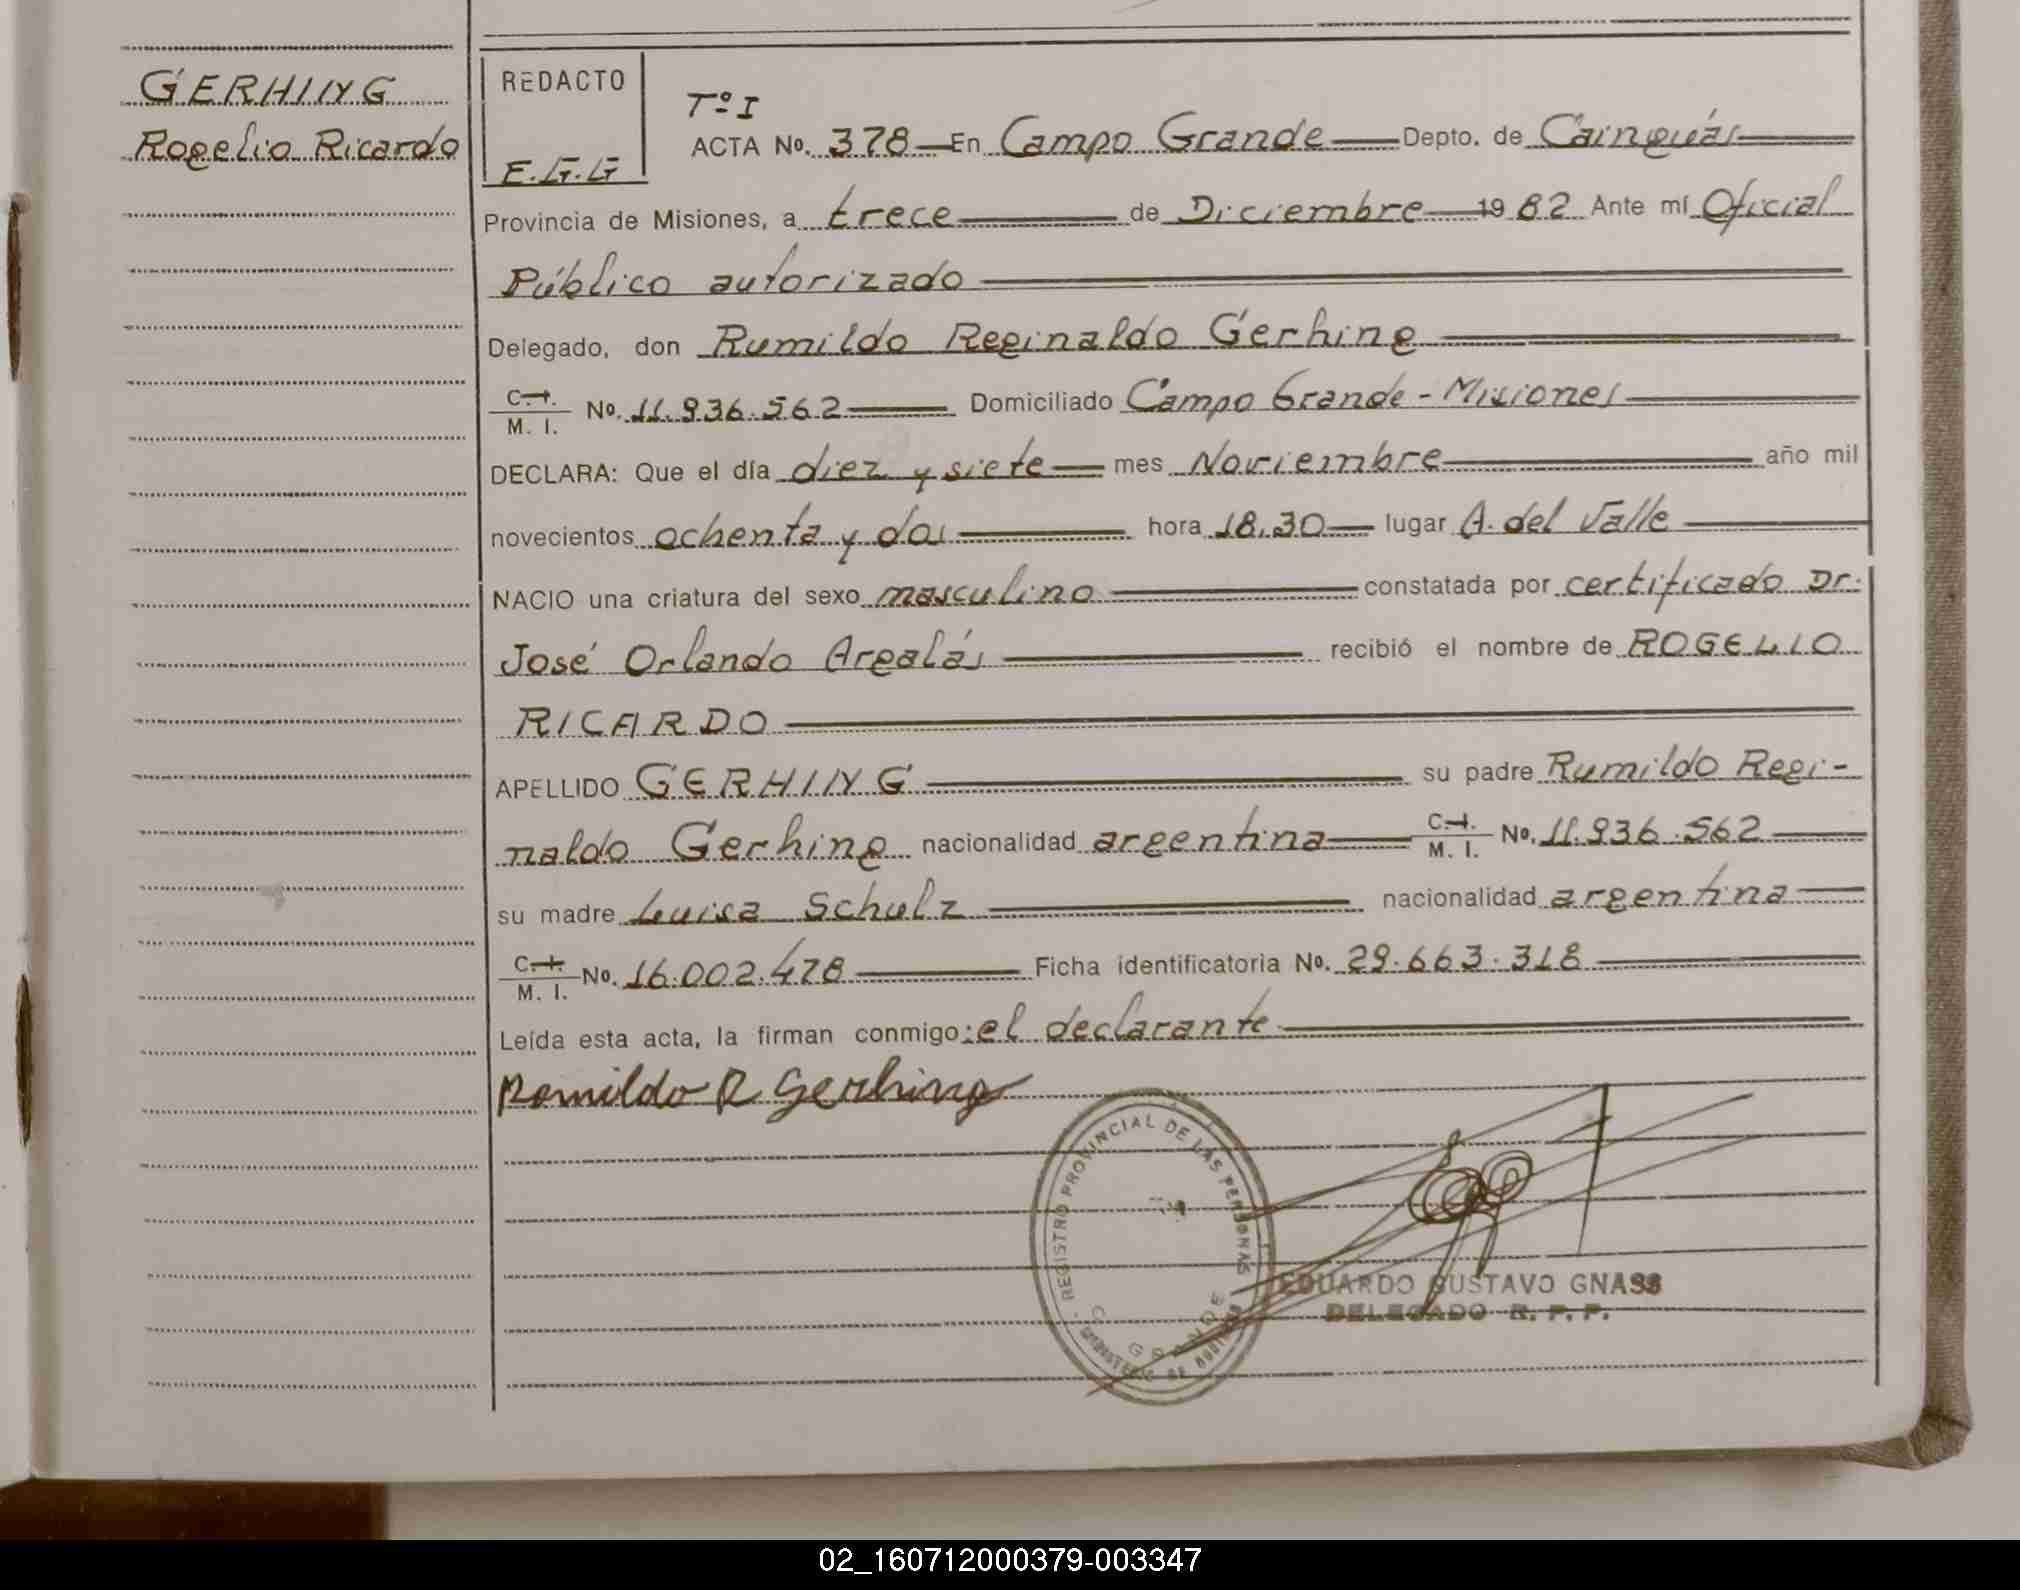 GERHING
Rogelio Ricardo
REDACTO
E.G.G
Tº I
ACTA No. 378 En Campo Grande Depto. de Cainguás
Provincia de Misiones, a trece de Diciembre 1982 Ante mí Oficial
Público autorizado
Delegado, don Rumildo Reginaldo Gerhing
C. I.
M. I. No. 11.936.562 Domiciliado Campo Grande - Misiones
DECLARA: Que el día diez y siete mes Noviembre año mil
novecientos ochenta y dos hora 18.30 lugar A. del Valle
NACIO una criatura del sexo masculino constatada por certificado Dr.
José Orlando Argalás recibió el nombre de ROGELIO
RICARDO
APELLIDO GERHING su padre Rumildo Regi-
naldo Gerhing nacionalidad argentina C. I. M. I. No. 11.936.562
su madre Luisa Schulz nacionalidad argentina
C. I.
M. I. No. 16.002.478 Ficha identificatoria No. 29.663.318
Leída esta acta, la firman conmigo: el declarante
Romildo R Gerhing
REGISTRO PROVINCIAL DE LAS PERSONAS
C. GRANDE
EDUARDO GUSTAVO GNASS
DELEGADO R. P. P.
02_160712000379-003347